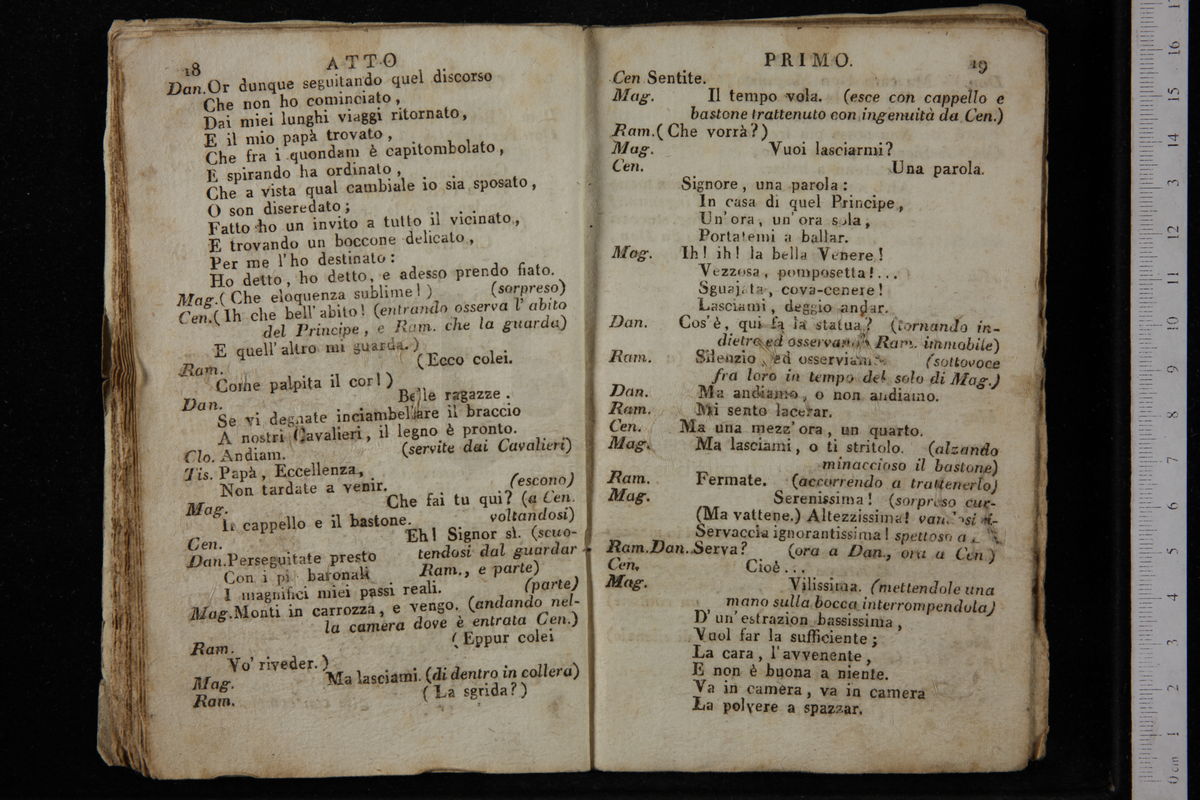 18 ATTO
Dan. Or dunque seguitando quel discorso
Che non ho cominciato,
Dai miei lunghi viaggi ritornato,
E il mio papà trovato,
Che fra i quondam è capitombolato,
E spirando ha ordinato,
Che a vista qual cambiale io sia sposato,
O son diseredato;
Fatto ho un invito a tutto il vicinato,
E trovando un boccone delicato,
Per me l'ho destinato:
Ho detto, ho detto, e adesso prendo fiato.
Mag. (Che eloquenza sublime!) (sorpreso)
Cen. (Ih che bell'abito! (entrando osserva l'abito
del Principe, e Ram. che la guarda)
E quell'altro mi guarda.)
Ram. (Ecco colei.
Come palpita il cor!)
Dan. Belle ragazze.
Se vi degnate inciambellare il braccio
A nostri Cavalieri, il legno è pronto.
Clo. Andiam. (servite dai Cavalieri)
Tis. Papà, Eccellenza,
Non tardate a venir. (escono)
Mag. Che fai tu qui? (a Cen.
Il cappello e il bastone. voltandosi)
Cen. Eh! Signor sì. (scuo-
Dan. Perseguitate presto tendosi dal guardar
Con i più baronali Ram., e parte)
I magnifici miei passi reali. (parte)
Mag. Monti in carrozza, e vengo. (andando nel-
la camera dove è entrata Cen.)
Ram. (Eppur colei
Vo' riveder.)
Mag. Ma lasciami. (di dentro in collera)
Ram. (La sgrida?)
PRIMO. 19
Cen Sentite.
Mag. Il tempo vola. (esce con cappello e
bastone trattenuto con ingenuità da Cen.)
Ram. (Che vorrà?)
Mag. Vuoi lasciarmi?
Cen. Una parola.
Signore, una parola:
In casa di quel Principe,
Un'ora, un'ora sola,
Portatemi a ballar.
Mag. Ih! ih! la bella Venere!
Vezzosa, pomposetta!...
Sguajata, cova-cenere!
Lasciami, deggio andar.
Dan. Cos'è, qui fa la statua? (tornando in-
dietro ed osservando Ram. immobile)
Ram. Silenzio ed osserviamo (sottovoce
fra loro in tempo del solo di Mag.)
Dan. Ma andiamo, o non andiamo.
Ram. Mi sento lacerar.
Cen. Ma una mezz'ora, un quarto.
Mag. Ma lasciami, o ti stritolo. (alzando
minaccioso il bastone)
Ram. Fermate. (accorrendo a trattenerlo)
Mag. Serenissima! (sorpreso cur-
(Ma vattene.) Altezzissima! vandosi ri-
Servaccia ignorantissima! spettoso a
Ram. Dan. Serva? (ora a Dan., ora a Cen.)
Cen. Cioè...
Mag. Vilissima. (mettendole una
mano sulla bocca interrompendola)
D'un'estrazion bassissima,
Vuol far la sufficiente;
La cara, l'avvenente,
E non è buona a niente.
Va in camera, va in camera
La polvere a spazzar.